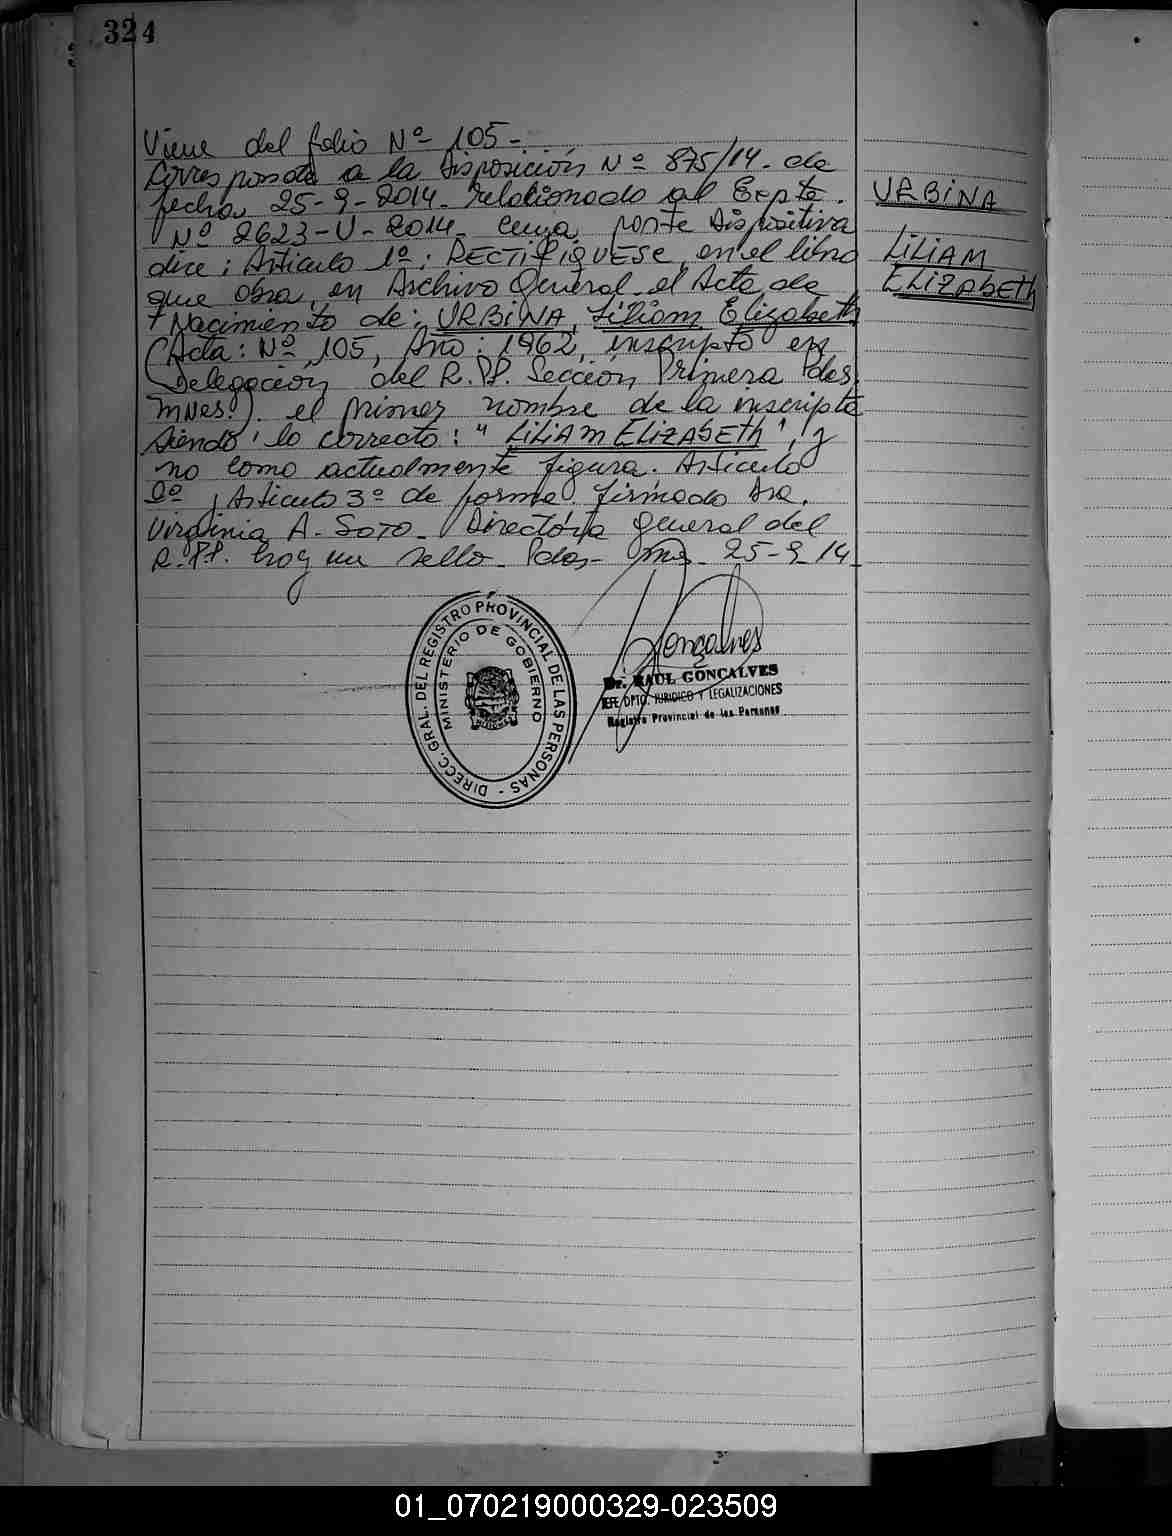 324
Viene del folio Nº 105-
Corresponde a la Disposición Nº 875/14. de
fecha 25-9-2014. relacionado al Expte.
Nº 2623-U-2014- cuya parte Dispositiva
dice: Articulo 1º: RECTIFIQUESE, en el libro
que obra, en Archivo General el Acta de
Nacimiento de: URBINA, Liliam Elizabeth
(Acta: Nº 105, Año: 1962, inscripto en
Delegación del R.PP. Sección Primera Pdas.
Mnes.). el primer nombre de la inscripta
siendo lo correcto: "LiLiAM ELiZABETh", y
no como actualmente figura. Articulo
2º y Articulo 3º de forma. firmado Dra.
Virginia A. SOTO- Directora general del
R.PP. hay un sello. Pdas- Mnes- 25-9-14-
URBiNA
LiLiAM
ELiZABETh
DIRECC. GRAL. DEL REGISTRO PROVINCIAL DE LAS PERSONAS -
MINISTERIO DE GOBIERNO
Gonçalves
Dr. RAUL GONCALVES
JEFE DPTO. JURIDICO Y LEGALIZACIONES
Registro Provincial de las Personas
01_070219000329-023509